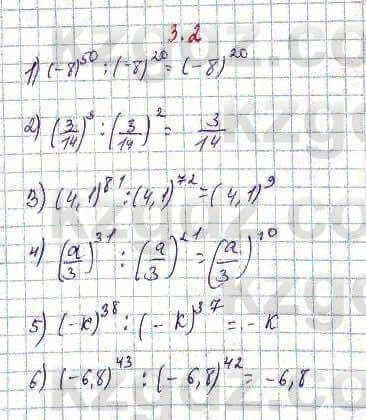 3.2
1) (-8)^50 : (-8)^20 = (-8)^20
2) (3/14)^3 : (3/14)^2 = 3/14
3) (4,1)^81 : (4,1)^72 = (4,1)^9
4) (a/3)^31 : (a/3)^21 = (a/3)^10
5) (-к)^38 : (-к)^37 = -к
6) (-6,8)^43 : (-6,8)^42 = -6,8